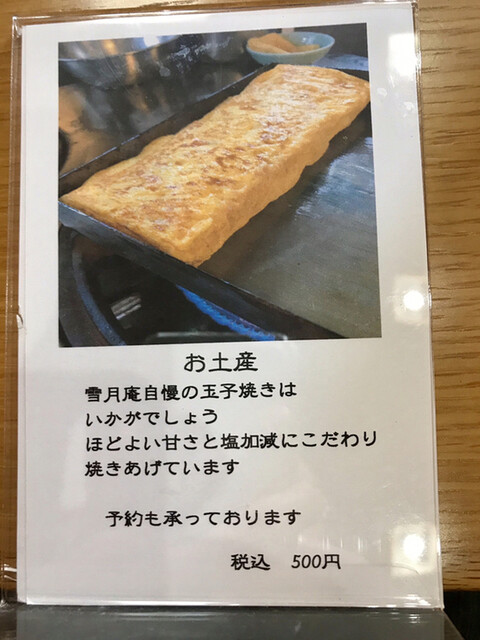 お土産
雪月庵自慢の玉子焼きは
いかがでしょう
ほどよい甘さと塩加減にこだわり
焼きあげています
予約も承っております
税込 500円